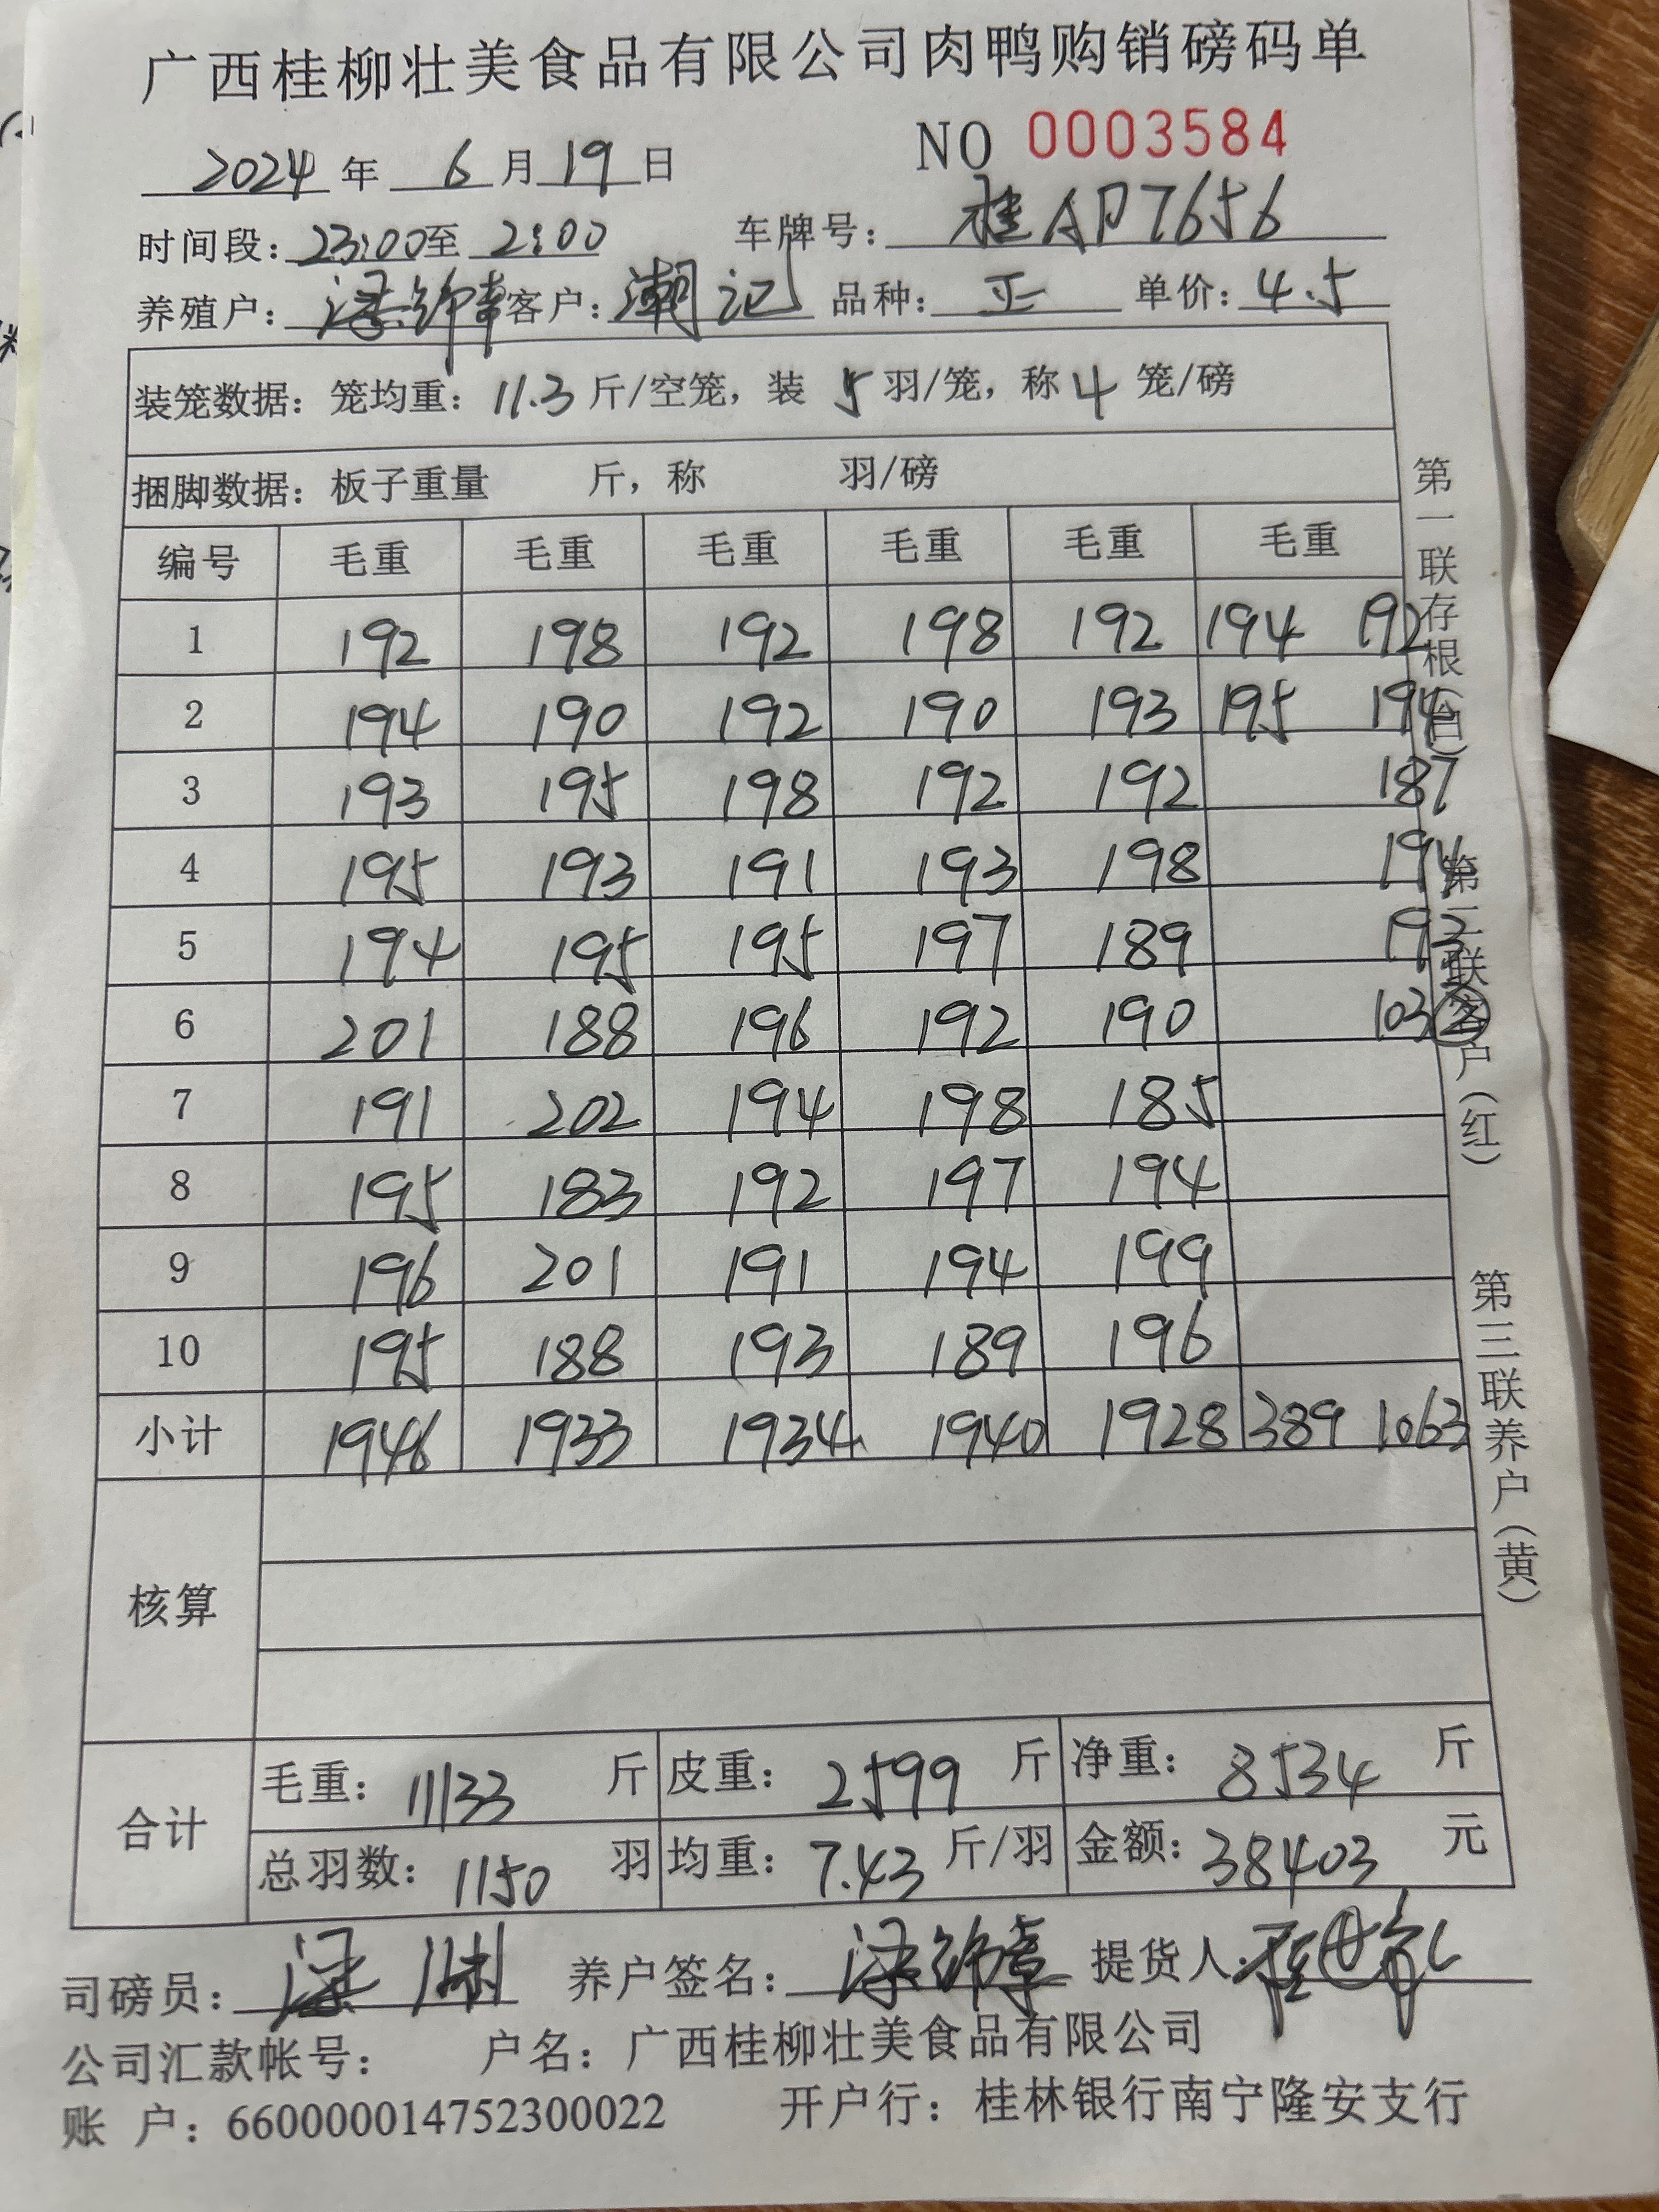 广西桂柳壮美食品有限公司肉鸭购销磅码单
NO 0003584
2024 年 6 月 19 日
时间段：23:00 至 2:00 车牌号：桂AP7656
养殖户：梁锦章 客户：潮记 品种：正 单价：4.5
装笼数据：笼均重：11.3 斤/空笼，装 5 羽/笼，称 4 笼/磅
捆脚数据：板子重量 斤，称 羽/磅
编号 毛重 毛重 毛重 毛重 毛重 毛重
1 192 198 192 198 192 194 192
2 194 190 192 190 193 195 194
3 193 195 198 192 192 187
4 195 193 191 193 198 194
5 194 195 195 197 189 193
6 201 188 196 192 190 103 ②
7 191 202 194 198 185
8 195 183 192 197 194
9 196 201 191 194 199
10 195 188 193 189 196
小计 1946 1933 1934 1940 1928 389 1063
核算
合计 毛重：11133 斤 皮重：2599 斤 净重：8534 斤
总羽数：1150 羽 均重：7.43 斤/羽 金额：38403 元
司磅员：梁 养户签名：梁锦章 提货人：
公司汇款帐号： 户名：广西桂柳壮美食品有限公司
账 户：660000014752300022 开户行：桂林银行南宁隆安支行
第一联存根（白）
第二联客户（红）
第三联养户（黄）